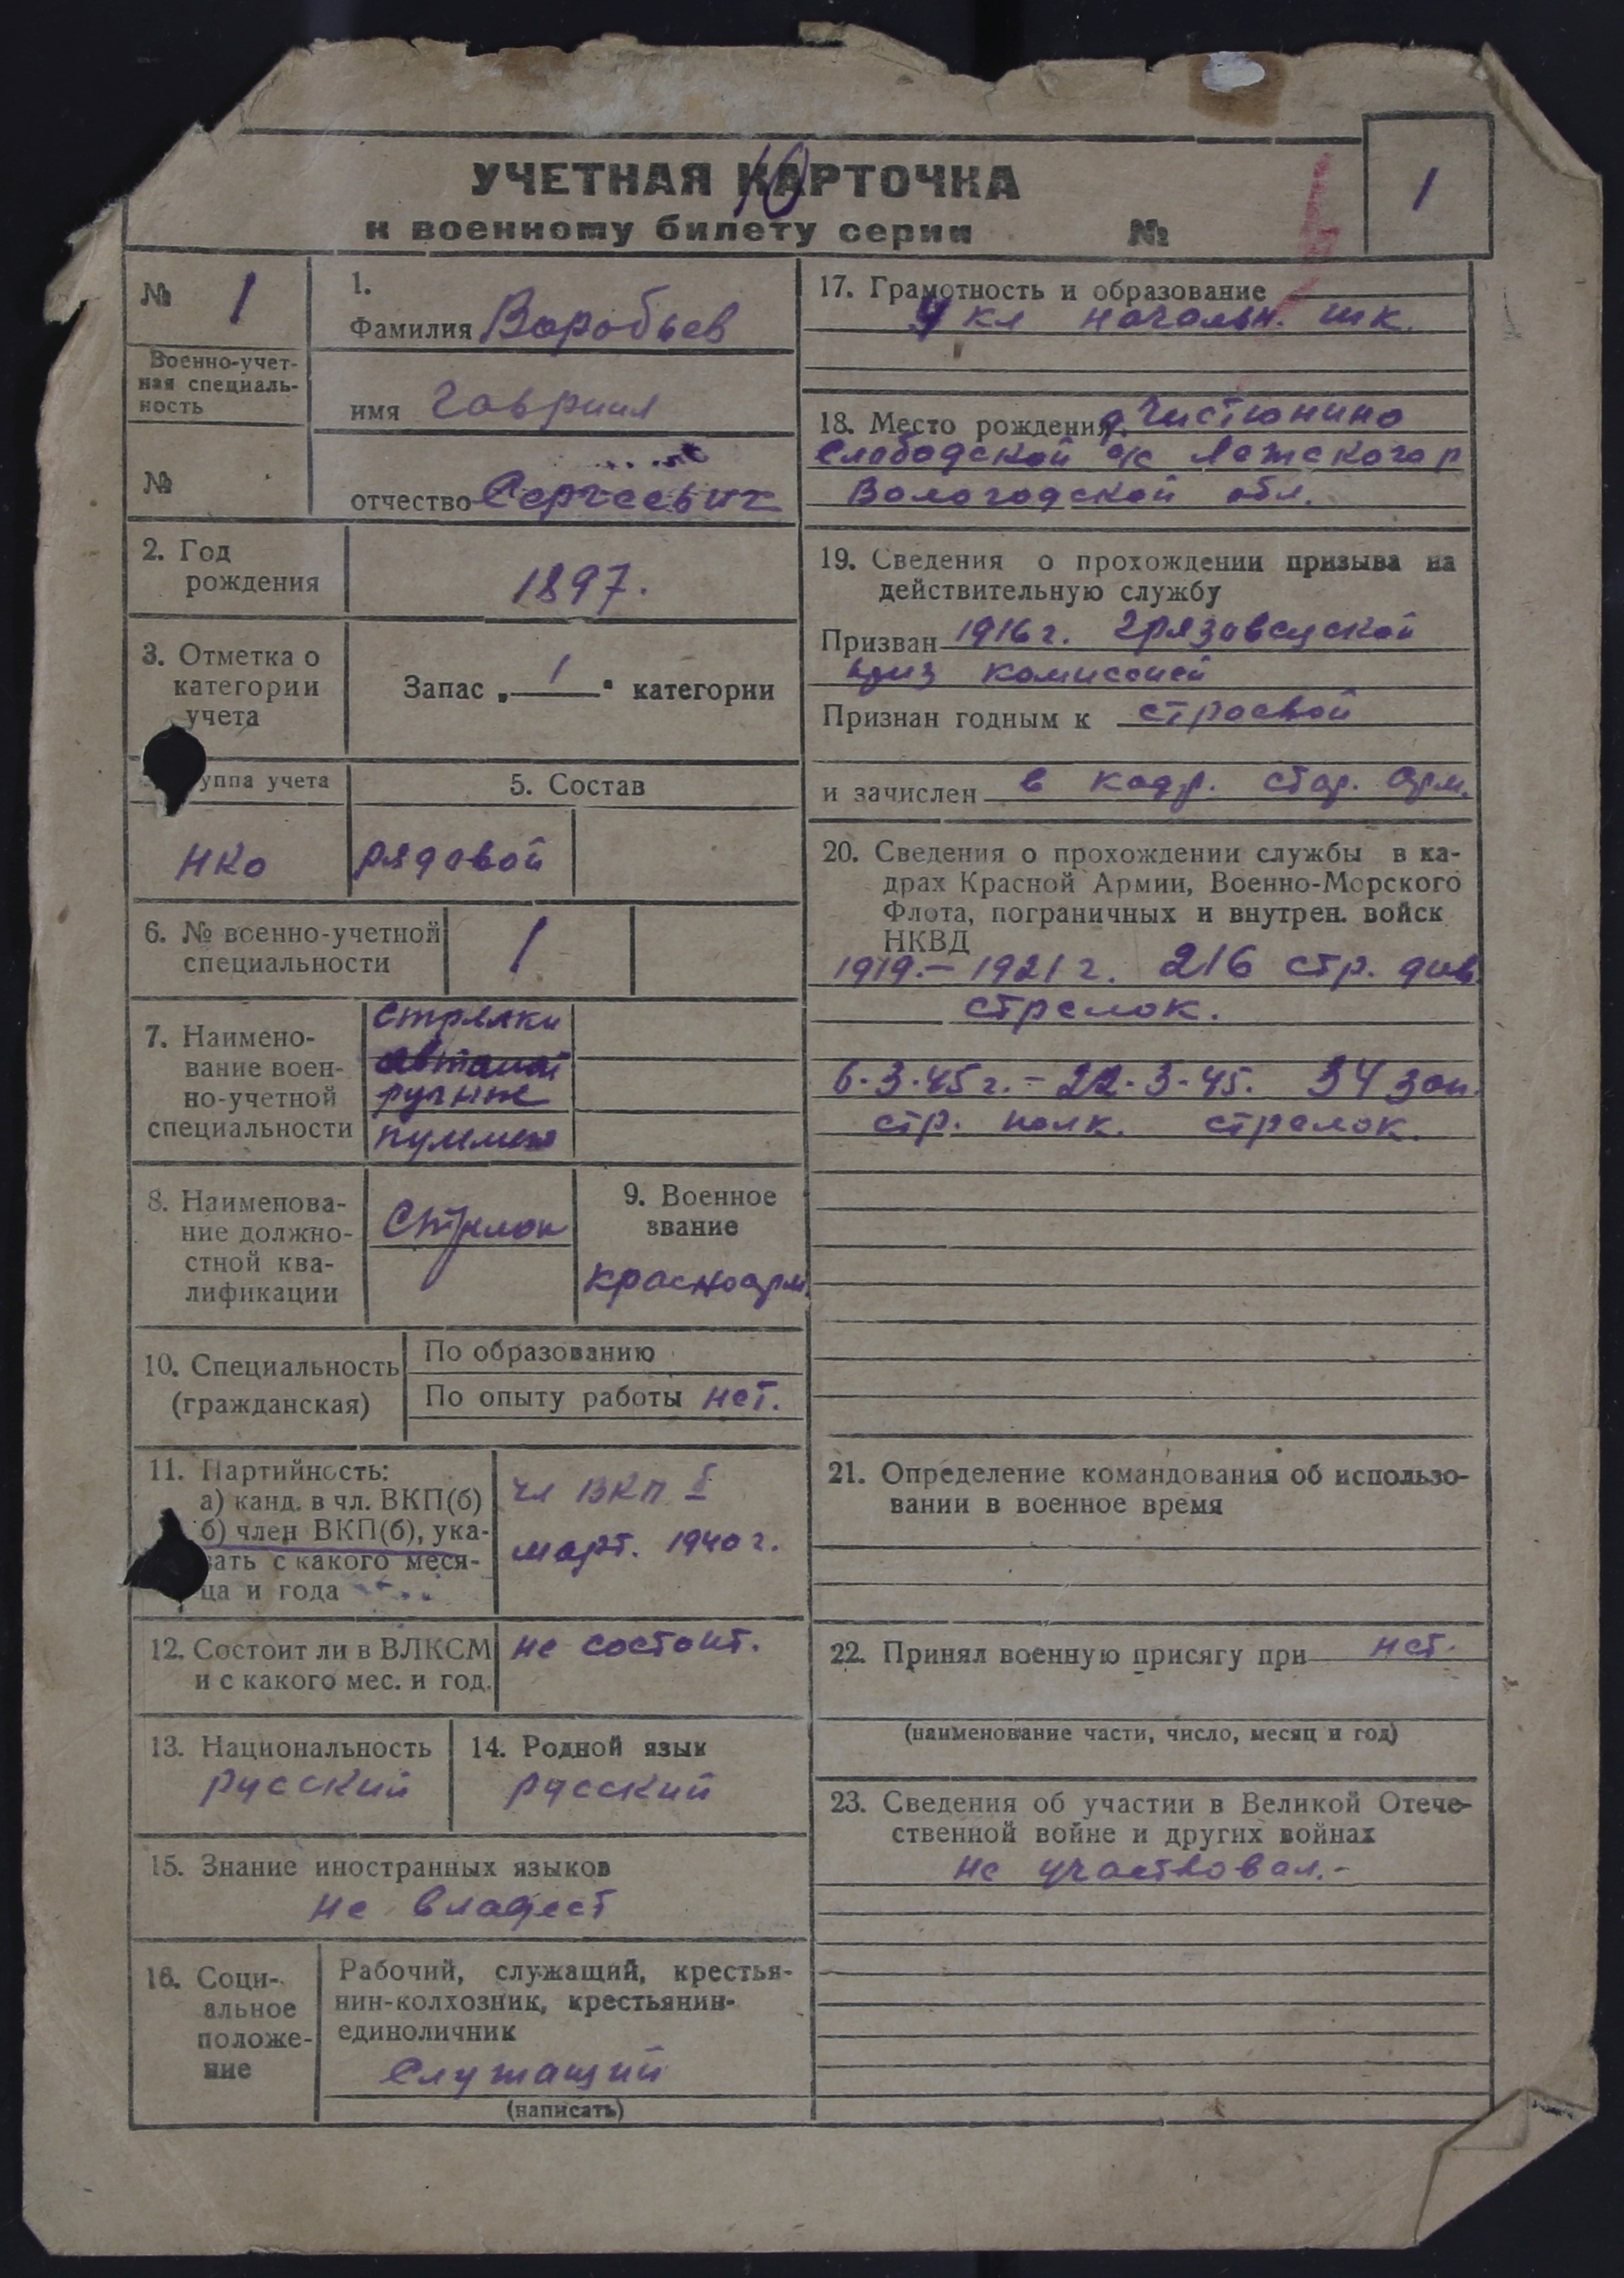 УЧЕТНАЯ КАРТОЧКА
10
к военному билету серии №
1
№ 1
Военно-учет-
ная специаль-
ность
№
1.
Фамилия Воробьев
имя Гавриил
отчество Сергеевич
2. Год
рождения
1897.
3. Отметка о
категории
учета
Запас „ 1 “ категории
уппа учета
НКО
5. Состав
рядовой
6. № военно-учетной
специальности
1
7. Наимено-
вание воен-
но-учетной
специальности
стрелки
ручные
8. Наименова-
ние должно-
стной ква-
лификации
Стрелок
9. Военное
звание
красноарм
10. Специальность
(гражданская)
По образованию
По опыту работы нет.
11. Партийность:
а) канд. в чл. ВКП(б)
б) член ВКП(б), ука-
зать с какого меся-
ца и года
чл ВКП б
март. 1940 г.
12. Состоит ли в ВЛКСМ
и с какого мес. и год.
не состоит.
13. Национальность
русский
14. Родной язык
русский
15. Знание иностранных языков
не владеет
16. Соци-
альное
положе-
ние
Рабочий, служащий, крестья-
нин-колхозник, крестьянин-
единоличник
Служащий
(написать)
17. Грамотность и образование
4 кл начальн. шк.
18. Место рождения д. Чистюнино
Слободской с/с Лежского р
Вологодской обл.
19. Сведения о прохождении призыва на
действительную службу
Призван 1916 г. Грязовецкой
комиссией
Признан годным к строевой
и зачислен в кадр. стар. арм.
20. Сведения о прохождении службы в ка-
драх Красной Армии, Военно-Морского
Флота, пограничных и внутрен. войск
НКВД
1919.-1921 г. 216 стр. див.
стрелок.
6.3.45 г.-22.3.45. 34 зап.
стр. полк. стрелок.
21. Определение командования об использо-
вании в военное время
22. Принял военную присягу при нет.
(наименование части, число, месяц и год)
23. Сведения об участии в Великой Отече-
ственной войне и других войнах
не участвовал.-